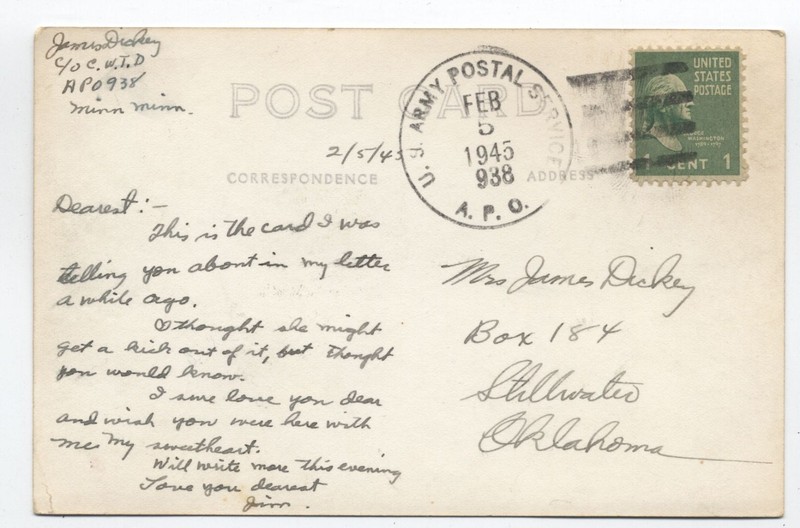 James Dickey
c/o C.W.T.D
APO 938
Minn Minn.
POST CARD
2/5/45
CORRESPONDENCE
ADDRESS
U.S. ARMY POSTAL SERVICE
FEB
5
1945
938
A.P.O.
UNITED
STATES
POSTAGE
WASHINGTON
1 CENT 1
Dearest:-
This is the card I was
telling you about in my letter
a while ago.
thought she might
get a kick out of it, but thought
you would know.
I sure love you dear
and wish you were here with
me my sweetheart.
Will write more this evening
Love you dearest
Jim.
Mrs James Dickey
Box 184
Stillwater
Oklahoma